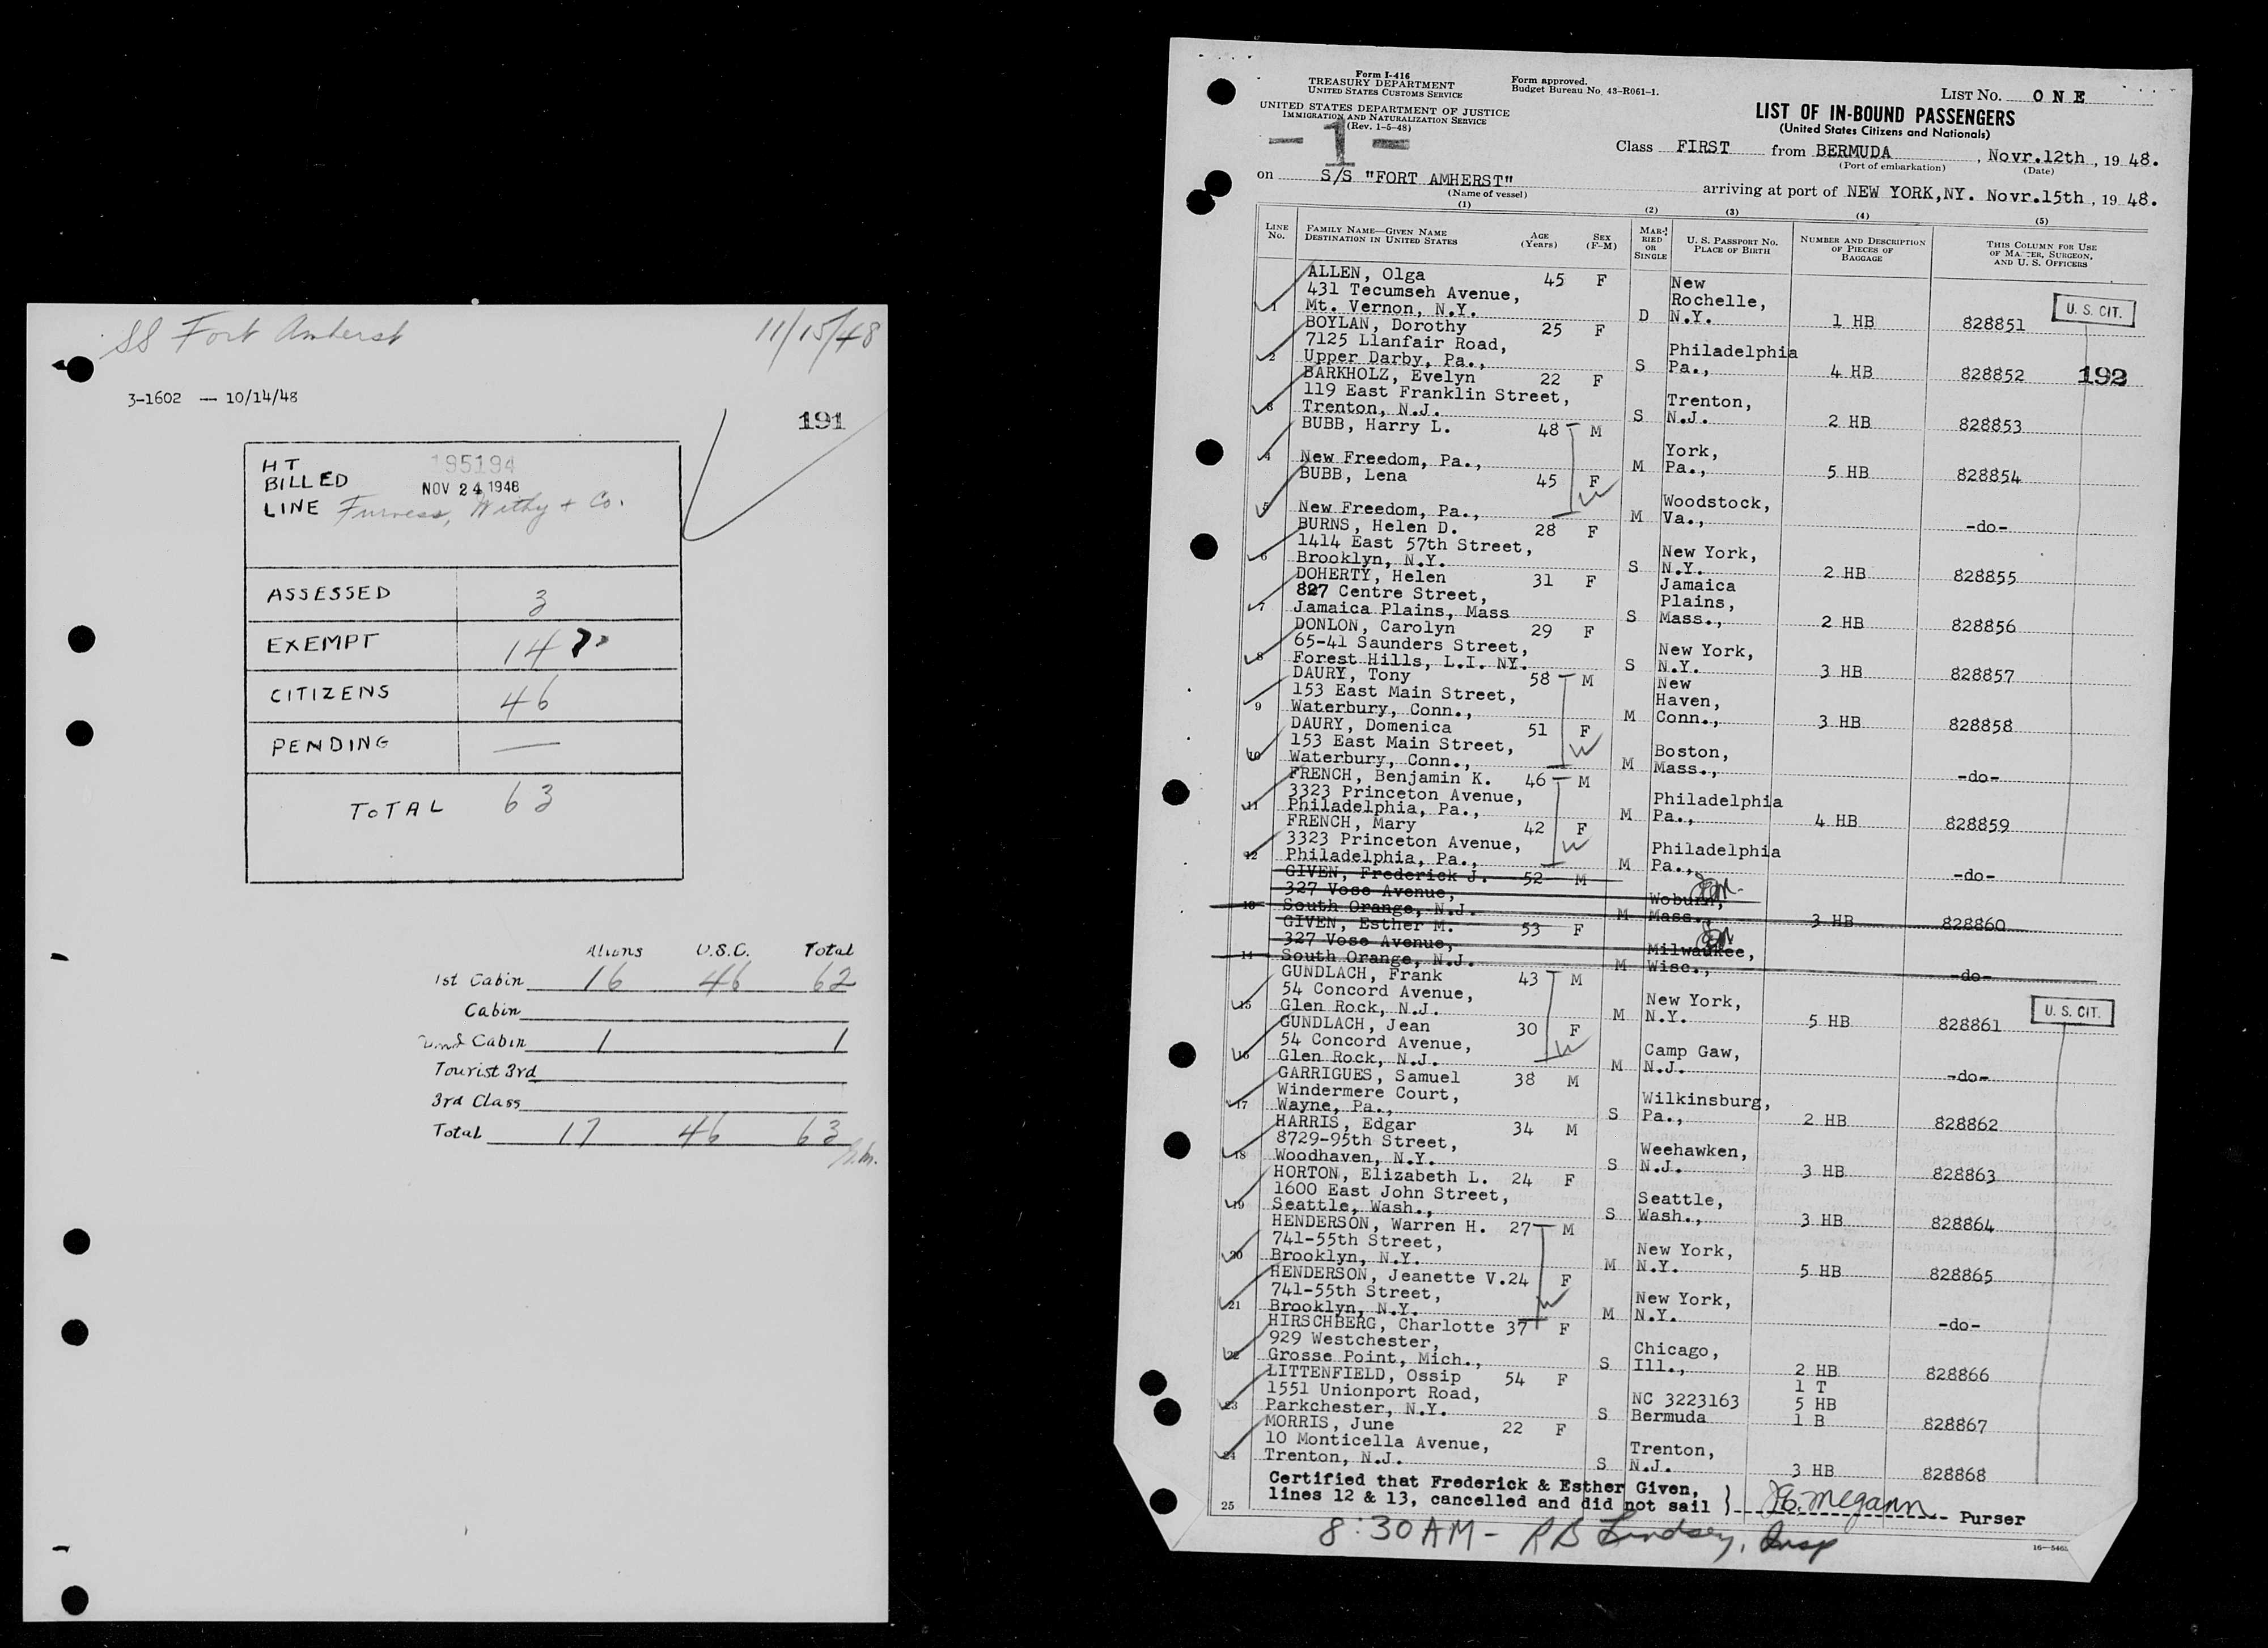 SS Fort Amherst 11/15/48
3-1602 — 10/14/48
191
HT
BILLED 195194
NOV 24 1948
LINE Furness, Withy + Co.
ASSESSED 3
EXEMPT 14
CITIZENS 46
PENDING —
TOTAL 63
Aliens U.S.C. Total
1st Cabin 16 46 62
Cabin
2nd Cabin 1 1
Tourist 3rd
3rd Class
Total 17 46 63
Form I-416
TREASURY DEPARTMENT
UNITED STATES CUSTOMS SERVICE
UNITED STATES DEPARTMENT OF JUSTICE
IMMIGRATION AND NATURALIZATION SERVICE
(Rev. 1-5-48)
Form approved.
Budget Bureau No. 43-R061-1.
- 1 -
LIST NO. ONE
LIST OF IN-BOUND PASSENGERS
(United States Citizens and Nationals)
Class FIRST from BERMUDA, Novr.12th, 1948.
(Port of embarkation) (Date)
on S/S "FORT AMHERST" arriving at port of NEW YORK,NY. Novr.15th, 1948.
(Name of vessel)
(1) (2) (3) (4) (5)
LINE No. FAMILY NAME—GIVEN NAME DESTINATION IN UNITED STATES AGE (Years) SEX (F-M) MARRIED OR SINGLE U. S. PASSPORT NO. PLACE OF BIRTH NUMBER AND DESCRIPTION OF PIECES OF BAGGAGE THIS COLUMN FOR USE OF MASTER, SURGEON, AND U. S. OFFICERS
ALLEN, Olga 45 F New
431 Tecumseh Avenue, Rochelle,
1 Mt. Vernon, N.Y. D N.Y. 1 HB 828851 U. S. CIT.
BOYLAN, Dorothy 25 F
7125 Llanfair Road, Philadelphia
2 Upper Darby, Pa., S Pa., 4 HB 828852 192
BARKHOLZ, Evelyn 22 F
119 East Franklin Street, Trenton,
3 Trenton, N.J. S N.J. 2 HB 828853
BUBB, Harry L. 48 M
York,
4 New Freedom, Pa., M Pa., 5 HB 828854
BUBB, Lena 45 F W
Woodstock,
5 New Freedom, Pa., M Va., -do-
BURNS, Helen D. 28 F
1414 East 57th Street, New York,
6 Brooklyn, N.Y. S N.Y. 2 HB 828855
DOHERTY, Helen 31 F Jamaica
827 Centre Street, Plains,
7 Jamaica Plains, Mass S Mass., 2 HB 828856
DONLON, Carolyn 29 F
65-41 Saunders Street, New York,
8 Forest Hills, L.I. NY. S N.Y. 3 HB 828857
DAURY, Tony 58 M New
153 East Main Street, Haven,
9 Waterbury, Conn., M Conn., 3 HB 828858
DAURY, Domenica 51 F W
153 East Main Street, Boston,
10 Waterbury, Conn., M Mass., -do-
FRENCH, Benjamin K. 46 M
3323 Princeton Avenue, Philadelphia
11 Philadelphia, Pa., M Pa., 4 HB 828859
FRENCH, Mary 42 F W
3323 Princeton Avenue, Philadelphia
12 Philadelphia, Pa., M Pa., -do-
GIVEN, Frederick J. 52 M
327 Vose Avenue, Woburn,
13 South Orange, N.J. M Mass., 3 HB 828860
GIVEN, Esther M. 53 F
327 Vose Avenue, Milwaukee,
14 South Orange, N.J. M Wisc., -do-
GUNDLACH, Frank 43 M
54 Concord Avenue, New York,
15 Glen Rock, N.J. M N.Y. 5 HB 828861 U. S. CIT.
GUNDLACH, Jean 30 F W
54 Concord Avenue, Camp Gaw,
16 Glen Rock, N.J. M N.J. -do-
GARRIGUES, Samuel 38 M
Windermere Court, Wilkinsburg,
17 Wayne, Pa., S Pa., 2 HB 828862
HARRIS, Edgar 34 M
8729-95th Street, Weehawken,
18 Woodhaven, N.Y. S N.J. 3 HB 828863
HORTON, Elizabeth L. 24 F
1600 East John Street, Seattle,
19 Seattle, Wash., S Wash., 3 HB 828864
HENDERSON, Warren H. 27 M
741-55th Street, New York,
20 Brooklyn, N.Y. M N.Y. 5 HB 828865
HENDERSON, Jeanette V. 24 F W
741-55th Street, New York,
21 Brooklyn, N.Y. M N.Y. -do-
HIRSCHBERG, Charlotte 37 F
929 Westchester, Chicago,
22 Grosse Point, Mich., S Ill., 2 HB 828866
LITTENFIELD, Ossip 54 F 1 T
1551 Unionport Road, NC 3223163 5 HB
23 Parkchester, N.Y. S Bermuda 1 B 828867
MORRIS, June 22 F
10 Monticella Avenue, Trenton,
24 Trenton, N.J. S N.J. 3 HB 828868
Certified that Frederick & Esther Given,
25 lines 12 & 13, cancelled and did not sail } McGann Purser
8:30 AM - RB Lindsey, Insp